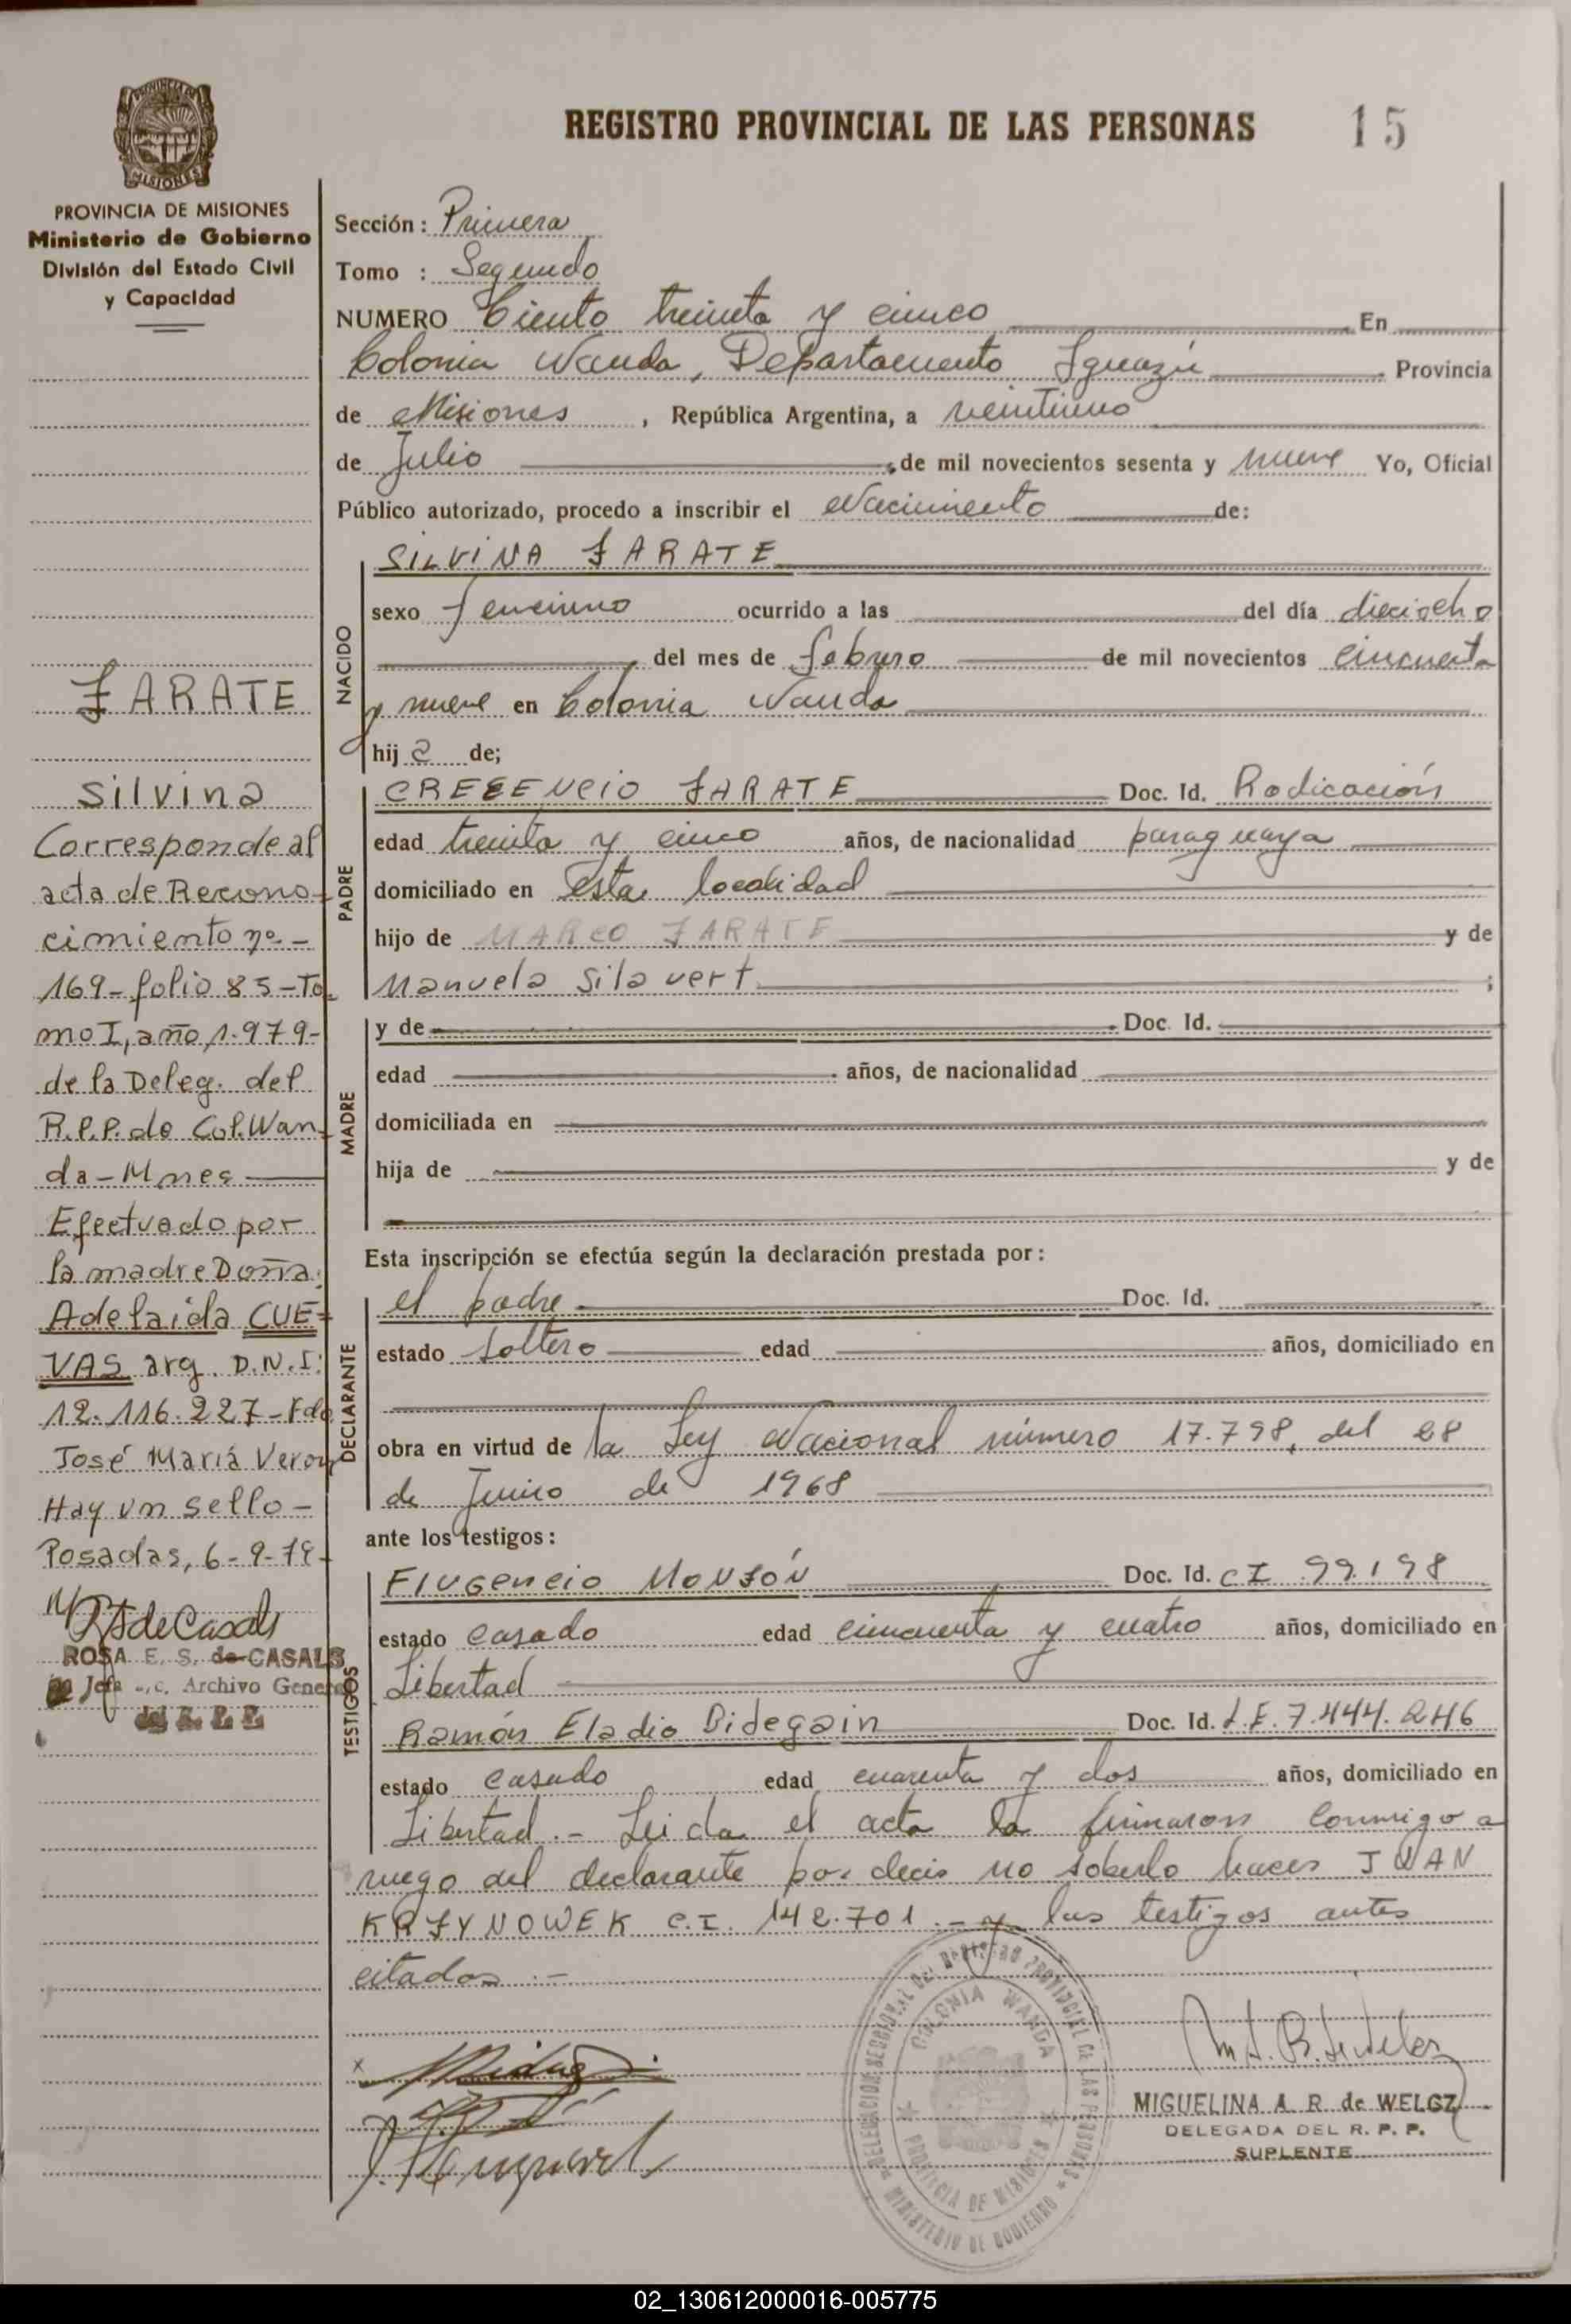 REGISTRO PROVINCIAL DE LAS PERSONAS 15
PROVINCIA DE MISIONES
PROVINCIA DE MISIONES
Ministerio de Gobierno
División del Estado Civil
y Capacidad
ZARATE
Silvina
Corresponde al
acta de Recono-
cimiento nº-
169-folio 85-To-
mo I, año 1.979-
de la Deleg. del
R.P.P. de Col. Wan-
da-Mnes
Efectuado por
la madre Doña:
Adelaida CUE-
VAS arg. D.N.I:
12.116.227-Fdo
José Mariá Veron
Hay un sello-
Posadas, 6-9-79-
ROSA E. S. de CASALS
Jefa Archivo General
Sección: Primera
Tomo : Segundo
NUMERO Ciento treinta y cinco En
Colonia Wanda, Departamento Iguazú Provincia
de Misiones, República Argentina, a veintiuno
de Julio de mil novecientos sesenta y nueve Yo, Oficial
Público autorizado, procedo a inscribir el Nacimiento de:
NACIDO
SILVINA ZARATE
sexo femenino ocurrido a las del día dieciocho
del mes de febrero de mil novecientos cincuenta
y nueve en Colonia Wanda
hija de;
PADRE
CRECENCIO ZARATE Doc. Id. Radicación
edad treinta y cinco años, de nacionalidad paraguaya
domiciliado en esta localidad
hijo de MARCO ZARATE y de
Manuela Silavert ;
MADRE
y de Doc. Id.
edad años, de nacionalidad
domiciliada en
hija de y de
Esta inscripción se efectúa según la declaración prestada por:
DECLARANTE
el padre Doc. Id.
estado soltero edad años, domiciliado en
obra en virtud de la Ley Nacional número 17.798, del 28
de Junio de 1968
ante los testigos:
TESTIGOS
FLUGENCIO MONZÓN Doc. Id. CI 99.198
estado casado edad cincuenta y cuatro años, domiciliado en
Libertad
Ramón Eladio Bidegain Doc. Id. L.E. 7.444.246
estado casado edad cuarenta y dos años, domiciliado en
Libertad.- Leida el acta la firmaron conmigo a
ruego del declarante por decir no saberlo hacer JUAN
KRZYNOWEK C.I. 142.701.- y los testigos antes
citados.-
DELEGACION SECCIONAL DEL REGISTRO PROVINCIAL DE LAS PERSONAS
MINISTERIO DE GOBIERNO
COLONIA WANDA
PROVINCIA DE MISIONES
MIGUELINA A. R. de WELGZ
DELEGADA DEL R. P. P.
SUPLENTE
02_130612000016-005775